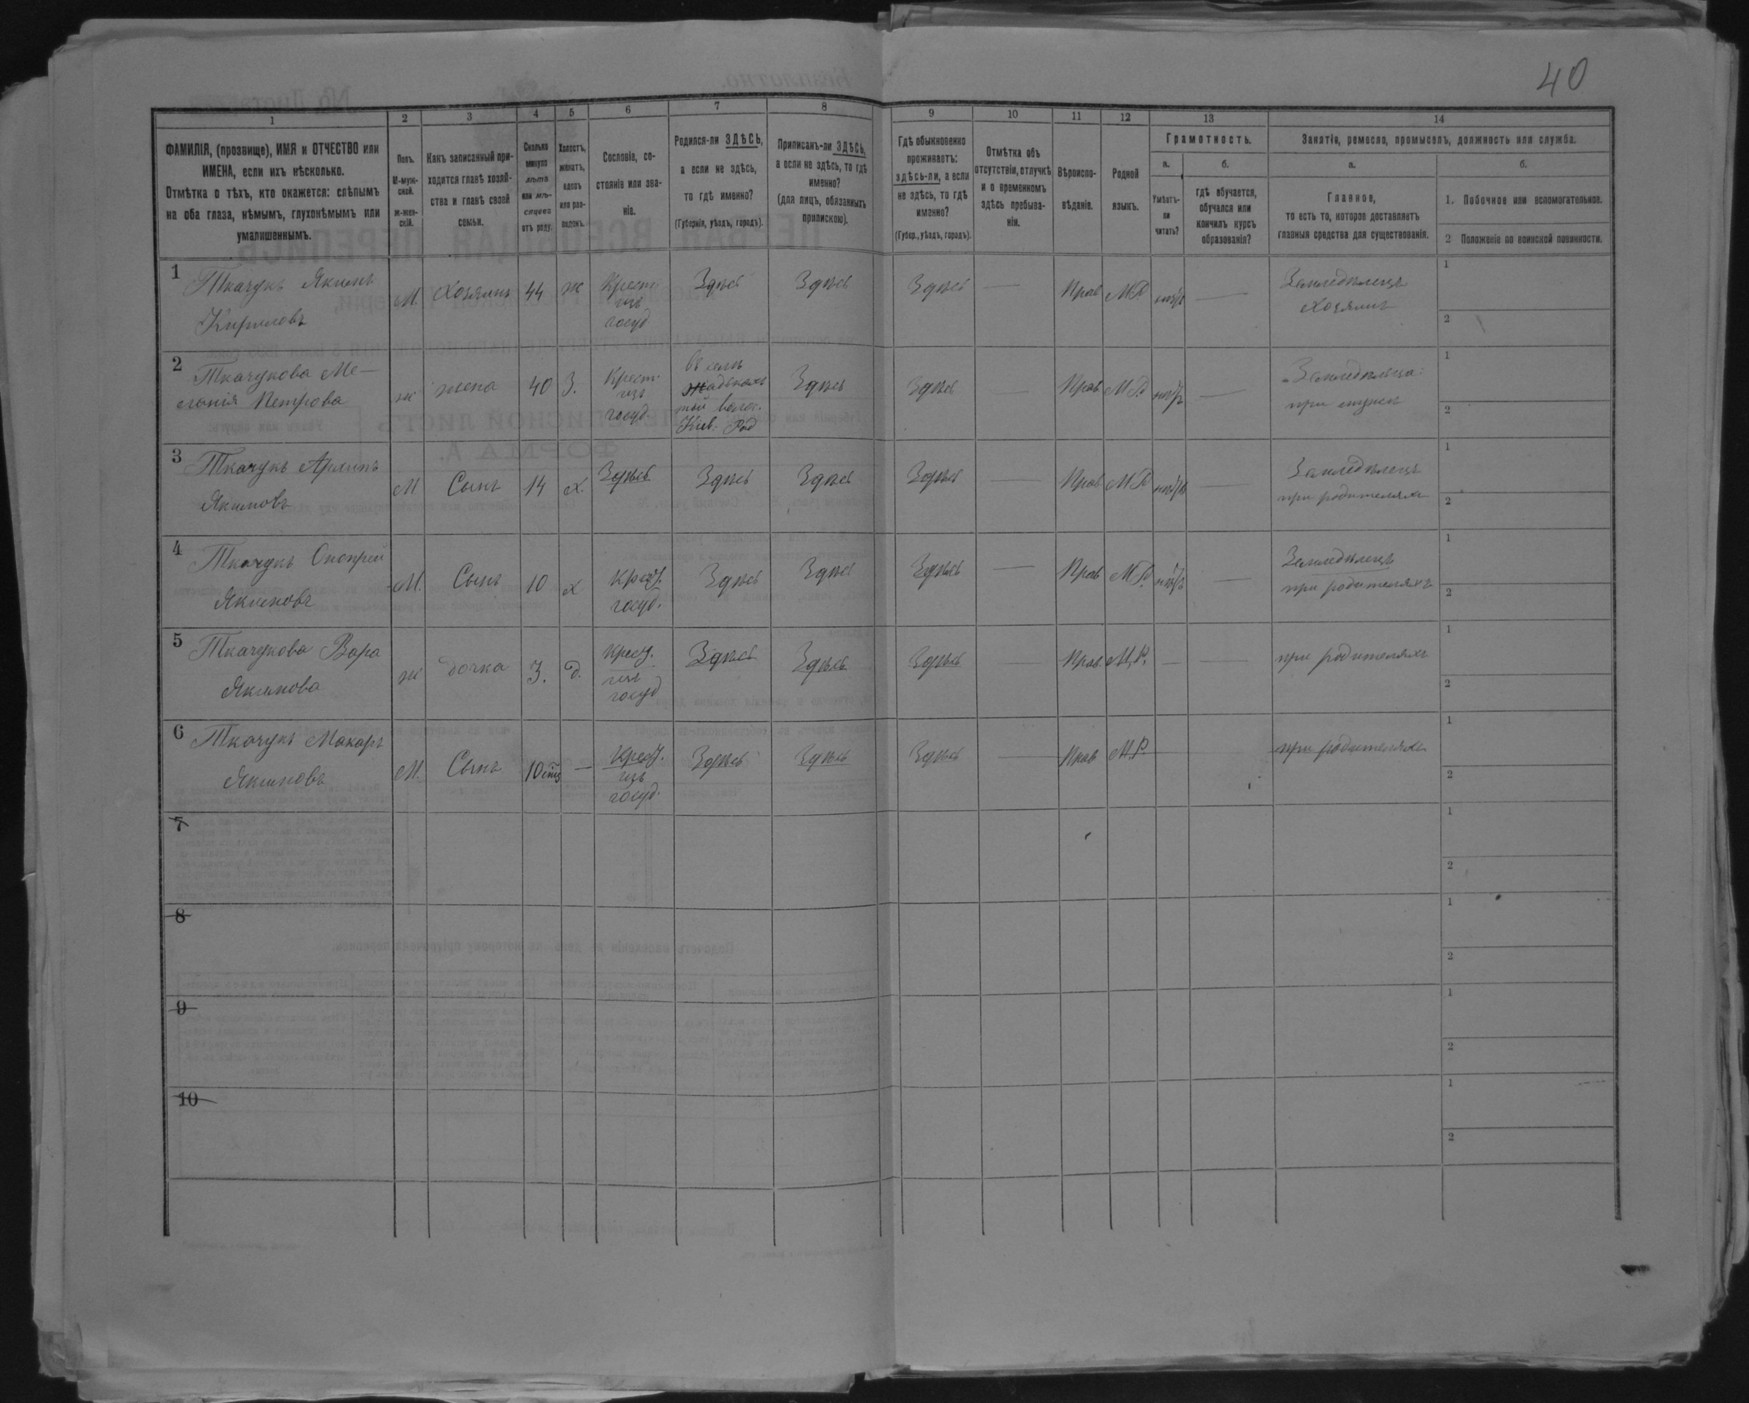 40
1 2 3 4 5 6 7 8 9 10 11 12 13 14
ФАМИЛІЯ, (прозвище), ИМЯ и ОТЧЕСТВО или
ИМЕНА, если ихъ нѣсколько.
Отмѣтка о тѣхъ, кто окажется: слѣпымъ
на оба глаза, нѣмымъ, глухонѣмымъ или
умалишеннымъ.
Полъ.
М-муж-
ской.
Ж-жен-
скій.
Какъ записанный при-
ходится главѣ хозяй-
ства и главѣ своей
семьи.
Сколько
минуло
лѣтъ
или мѣ-
сяцевъ
отъ роду.
Холостъ,
женатъ,
вдовъ
или раз-
веденъ.
Сословіе, со-
стояніе или зва-
ніе.
Родился-ли ЗДѢСЬ,
а если не здѣсь,
то гдѣ именно?
(Губернія, уѣздъ, городъ).
Приписанъ-ли ЗДѢСЬ,
а если не здѣсь, то гдѣ
именно?
(для лицъ, обязанныхъ
припискою).
Гдѣ обыкновенно
проживаетъ:
здѣсь-ли, а если
не здѣсь, то гдѣ
именно?
(Губер., уѣздъ, городъ).
Отмѣтка объ
отсутствіи, отлучкѣ
и о временномъ
здѣсь пребыва-
ніи.
Вѣроиспо-
вѣданіе.
Родной
языкъ.
Грамотность.
а.
Умѣетъ-
ли
читать?
б.
гдѣ обучается,
обучался или
кончилъ курсъ
образованія?
Занятіе, ремесло, промыселъ, должность или служба.
а.
Главное,
то есть то, которое доставляетъ
главныя средства для существованія.
б.
1. Побочное или вспомогательное.
2 Положеніе по воинской повинности.
1 Ткачукъ Якимъ
Кириловъ
М. Хозяинъ 44 ж
Крест.
изъ
госуд
Здѣсь Здѣсь Здѣсь — Прав М.Р. нѣтъ —
Земледѣлецъ
Хозяинъ
1
2
2 Ткачукова Ме—
ланія Петрова
ж жена 40 З.
Крест.
изъ
госуд.
въ селѣ
волос.
Кiев.
Здѣсь Здѣсь — Прав М.Р. нѣтъ —
при мужѣ
1
2
3 Ткачукъ
Якимовъ
М Сынъ 14 х.
Здѣсь Здѣсь Здѣсь Здѣсь — Прав М.Р. нѣтъ —
Земледѣлецъ
при родителяхъ
1
2
4 Ткачукъ Онопрій
Якимовъ
М. Сынъ 10 х
Крест.
госуд.
Здѣсь Здѣсь Здѣсь — Прав М.Р. нѣтъ —
Земледѣлецъ
при родителяхъ
1
2
5 Ткачукова Вара
Якимова
ж дочка 3. д.
Крест.
изъ
госуд
Здѣсь Здѣсь Здѣсь — Прав М.Р. — —
при родителяхъ
1
2
6 Ткачукъ Макаръ
Якимовъ
М. Сынъ 10 —
Крест.
изъ
госуд.
Здѣсь Здѣсь Здѣсь — Прав М.Р. —
при родителяхъ
1
2
7
1
2
8
1
2
9
1
2
10
1
2